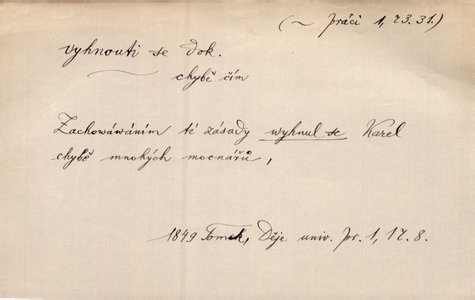 (~ práci 1, 23. 31.)
vyhnouti se dok.
chybě čím
Zachowáwáním té zásady wyhnul se Karel
chybě mnohých mocnářů,
1849 Tomek, Děje univ. pr. 1, 17. 8.